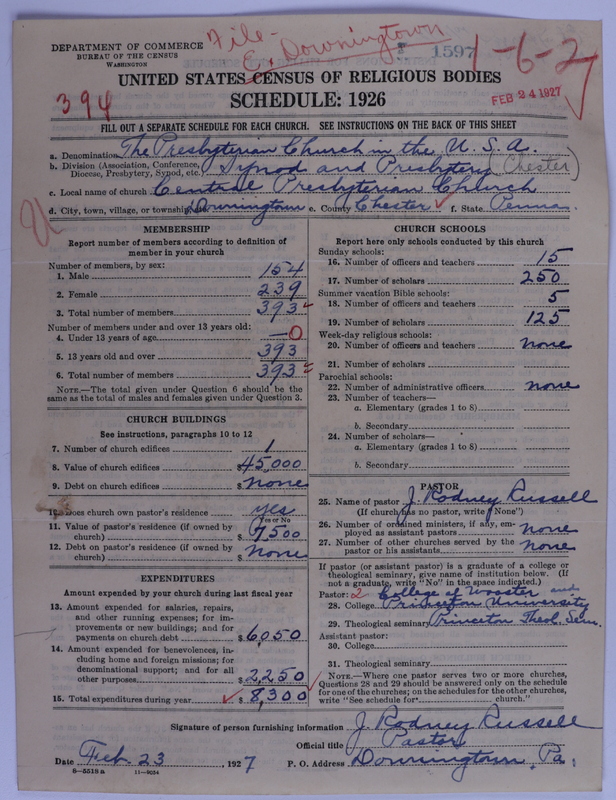 File-
Ex Downingtown
1597
1-6-27
DEPARTMENT OF COMMERCE
BUREAU OF THE CENSUS
WASHINGTON
UNITED STATES CENSUS OF RELIGIOUS BODIES
394
SCHEDULE: 1926
FEB 24 1927
FILL OUT A SEPARATE SCHEDULE FOR EACH CHURCH. SEE INSTRUCTIONS ON THE BACK OF THIS SHEET
a. Denomination The Presbyterian Church in the U.S.A.
b. Division (Association, Conference, Diocese, Presbytery, Synod, etc.) Synod and Presbytery (Chester)
c. Local name of church Central Presbyterian Church
d. City, town, village, or township Downingtown e. County Chester f. State Penna.
MEMBERSHIP
Report number of members according to definition of
member in your church
Number of members, by sex:
1. Male 154
2. Female 239
3. Total number of members 393
Number of members under and over 13 years old:
4. Under 13 years of age — 0
5. 13 years old and over 393
6. Total number of members 393
NOTE.—The total given under Question 6 should be
same as the total of males and females given under Question 3.
CHURCH BUILDINGS
See instructions, paragraphs 10 to 12
7. Number of church edifices 1
8. Value of church edifices $45,000
9. Debt on church edifices $none
10. Does church own pastor's residence yes
Yes or No
11. Value of pastor's residence (if owned by
church) $7,500
12. Debt on pastor's residence (if owned by
church) $none
EXPENDITURES
Amount expended by your church during last fiscal year
13. Amount expended for salaries, repairs,
and other running expenses; for im-
provements or new buildings; and for
payments on church debt $6,050
14. Amount expended for benevolences, in-
cluding home and foreign missions; for
denominational support; and for all
other purposes $2,250
15. Total expenditures during year $8,300
CHURCH SCHOOLS
Report here only schools conducted by this church
Sunday schools:
16. Number of officers and teachers 15
17. Number of scholars 250
Summer vacation Bible schools:
18. Number of officers and teachers 5
19. Number of scholars 125
Week-day religious schools:
20. Number of officers and teachers none
21. Number of scholars
Parochial schools:
22. Number of administrative officers none
23. Number of teachers—
a. Elementary (grades 1 to 8)
b. Secondary
24. Number of scholars—
a. Elementary (grades 1 to 8)
b. Secondary
PASTOR
25. Name of pastor J. Rodney Russell
(If church has no pastor, write "None")
26. Number of ordained ministers, if any, em-
ployed as assistant pastors none
27. Number of other churches served by the
pastor or his assistants none
If pastor (or assistant pastor) is a graduate of a college or
theological seminary, give name of institution below. (If
not a graduate, write "No" in the space indicated.)
Pastor: 2 College of Wooster and
28. College Princeton University
29. Theological seminary Princeton Theol. Sem.
Assistant pastor:
30. College
31. Theological seminary
NOTE.—Where one pastor serves two or more churches,
Questions 28 and 29 should be answered only on the schedule
for one of the churches; on the schedules for the other churches,
write "See schedule for church."
Signature of person furnishing information J. Rodney Russell
Official title Pastor
Date Feb. 23, 1927 P. O. Address Downingtown, Pa.
8-5518 a 11-9034